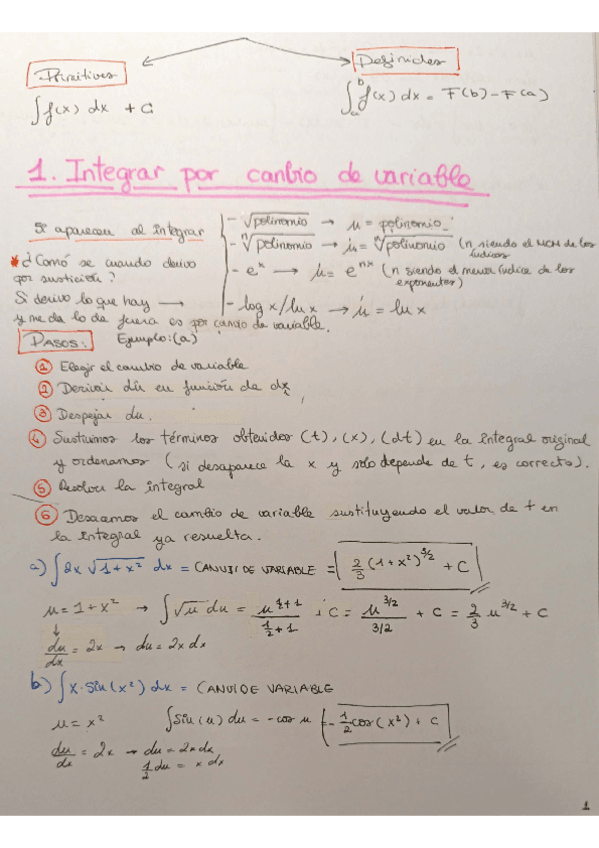 Primitives
Definides
∫f(x) dx + C
∫ₐᵇ f(x) dx = F(b) - F(a)
1. Integrar por canbio de variable
Si aparecen al integrar
- √polinomio → u = polinomio
- ⁿ√polinomio → u = ⁿ√polinomio (n siendo el MCM de los índices)
- eˣ → u = eⁿˣ (n siendo el menor índice de los exponentes)
- log x/ln x → u = ln x
* ¿Comó se cuando derivo
por sustición?
Si derivo lo que hay →
y me da lo de fuera es por canvio de variable.
PASOS:
Ejemplo: (a)
1 Elegir el cambio de variable
2 Derivar du en función de dx
3 Despejar du.
4 Sustituimos los términos obtenidos (t), (x), (dt) en la integral original
y ordenamos (si desaparece la x y solo depende de t, es correcto).
5 Resolver la integral
6 Desacemos el cambio de variable sustituyendo el valor de t en
la integral ya resuelta.
a) ∫2x √1+x² dx = CANVI DE VARIABLE = 2/3 (1+x²)^3/2 + C
u = 1+x² → ∫√u du = u^(1/2+1) / (1/2+1) + C = u^3/2 / 3/2 + C = 2/3 u^3/2 + C
du/dx = 2x → du = 2x dx
b) ∫x·sin(x²) dx = CANVI DE VARIABLE
u = x² ∫sin(u) du = -cos u = -1/2 cos(x²) + C
du/dx = 2x → du = 2x dx
1/2 du = x dx
1